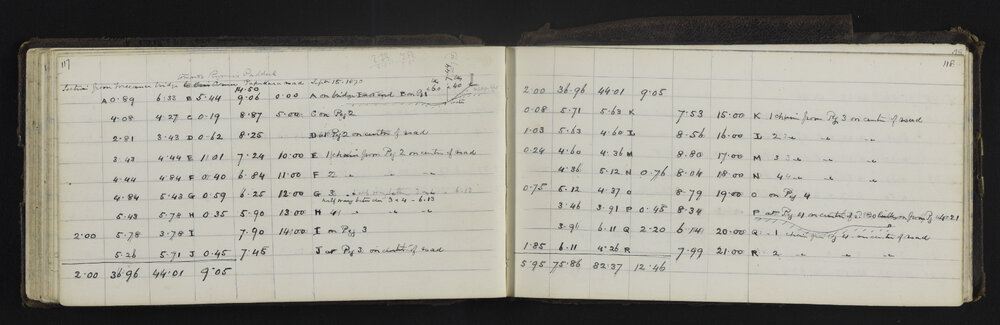 117
Section from Toreanui bridge Papakura road Sept 15. 1890
14.50
A 0.89 6.33 B 5.44 9.06 0.00 A on bridge East end B on Pg 1
4.08 4.27 C 0.19 8.87 5.00 C on Pg 2
2.81 3.43 D 0.62 8.25 D at Pg 2 on centre of road
3.43 4.44 E 1.01 7.24 10.00 E 1 chain from Pg 2 on centre of road
4.44 4.84 F 0.40 6.84 11.00 F 2 " " "
4.84 5.43 G 0.59 6.25 12.00 G 3
half way between 3 & 4 - 6.13
5.43 5.78 H 0.35 5.90 13.00 H 4 " " "
2.00 5.78 3.78 I 7.90 14.00 I on Pg 3
5.26 5.71 J 0.45 7.45 J at Pg 3 on centre of road
2.00 36.96 44.01 9.05
118
2.00 36.96 44.01 9.05
0.08 5.71 5.63 K 7.53 15.00 K 1 chain from Pg 3 on centre of road
1.03 5.63 4.60 L 8.56 16.00 L 2 " " "
0.24 4.60 4.36 M 8.80 17.00 M 3 " " "
4.36 5.12 N 0.76 8.04 18.00 N 4 " " "
0.75 5.12 4.37 O 8.79 19.00 O on Pg 4
3.46 3.91 P 0.45 8.34 P at Pg 4 on centre of
3.91 6.11 Q 2.20 6.14 20.00 Q 1 chain from Pg 4 on centre of road
1.85 6.11 4.26 R 7.99 21.00 R 2 " " "
5.95 75.86 82.37 12.46